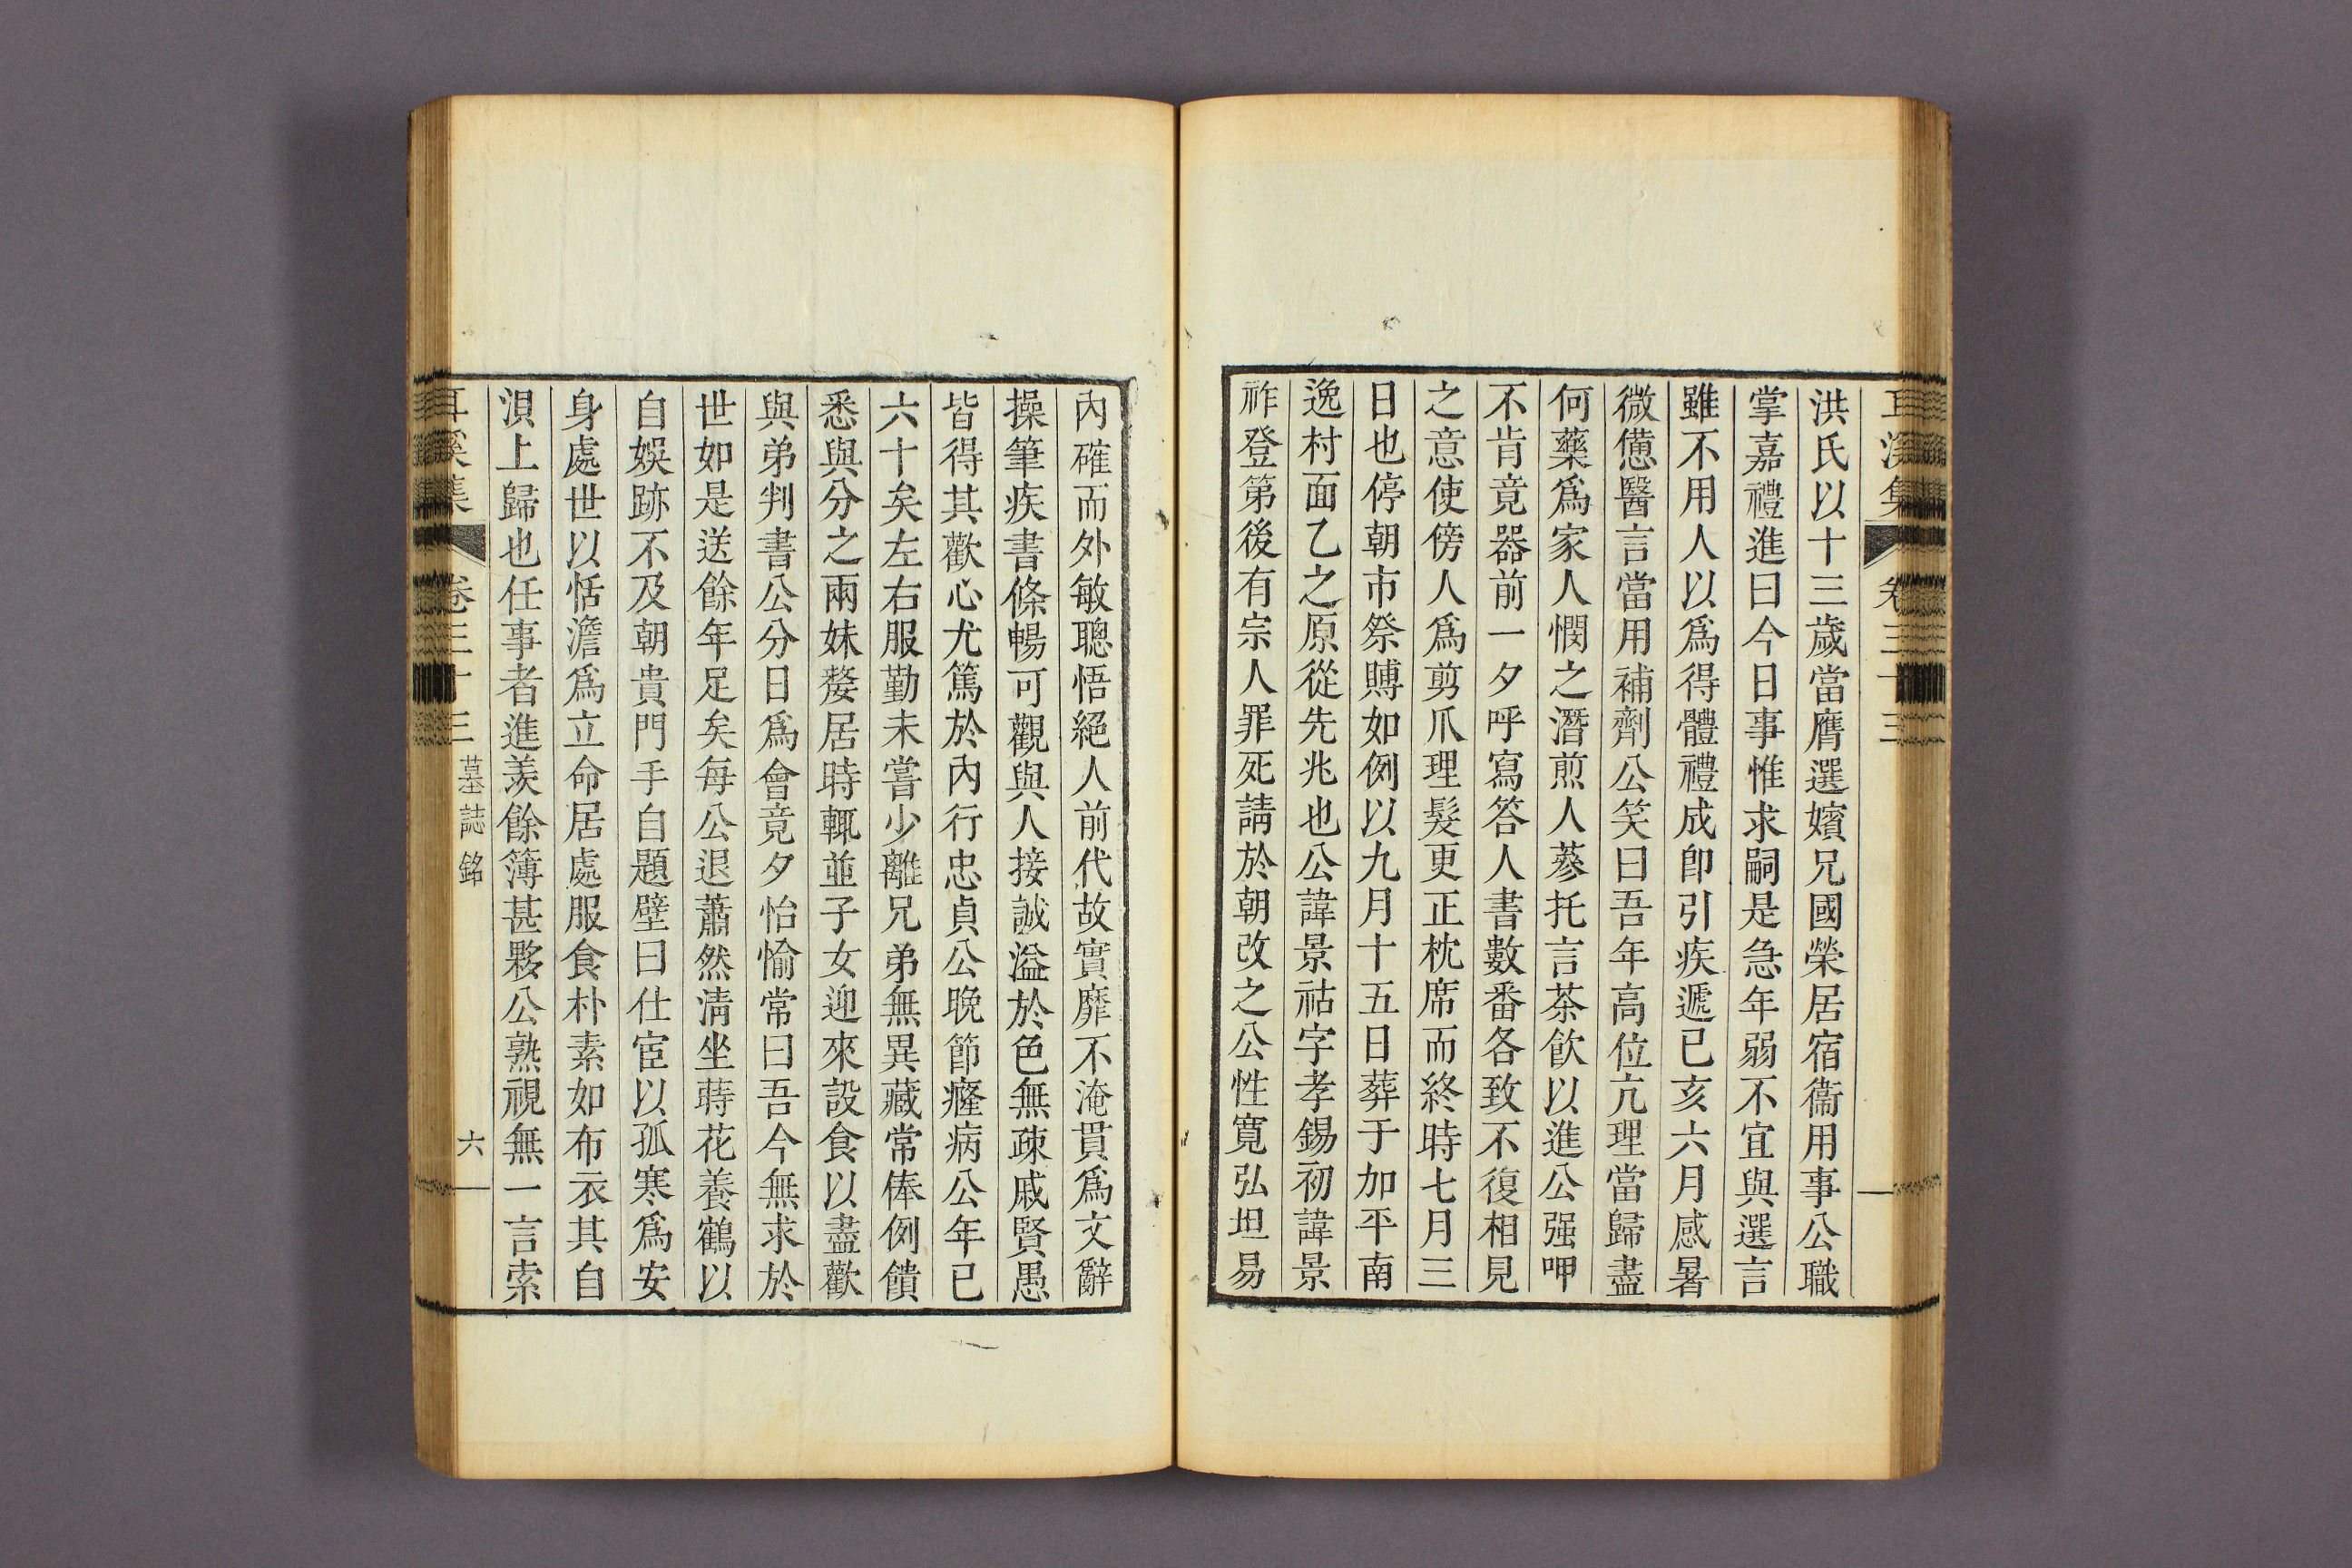 洪氏以十三歲當膺選嬪兄國榮居宿衞用事公職
掌嘉禮進曰今日事惟求嗣是急年弱不宜與選言
雖不用人以爲得體禮成卽引疾遞已亥六月感暑
微憊醫言當用補劑公笑曰吾年高位亢理當歸盡
何藥爲家人憫之潛煎人蔘托言茶飮以進公强呷
不肯竟器前一夕呼寫答人書數番各致不復相見
之意使傍人爲剪爪理髮更正枕席而終時七月三
日也停朝市祭賻如例以九月十五日葬于加平南
逸村面乙之原從先兆也公諱景祜字孝錫初諱景
祚登第後有宗人罪死請於朝改之公性寬弘坦易
內確而外敏聰悟絕人前代故實靡不淹貫爲文辭
操筆疾書條暢可觀與人接誠溢於色無疎戚賢愚
皆得其歡心尤篤於內行忠貞公晚節癃病公年已
六十矣左右服勤未嘗少離兄弟無異藏常俸例饋
悉與分之兩妹嫠居時輒並子女迎來設食以盡歡
與弟判書公分日爲會竟夕怡愉常曰吾今無求於
世如是送餘年足矣每公退蕭然淸坐蒔花養鶴以
自娛跡不及朝貴門手自題壁曰仕宦以孤寒爲安
身處世以恬澹爲立命居處服食朴素如布衣其自
浿上歸也任事者進羨餘簿甚夥公熟視無一言索
耳溪集 卷三十三 墓誌銘 六